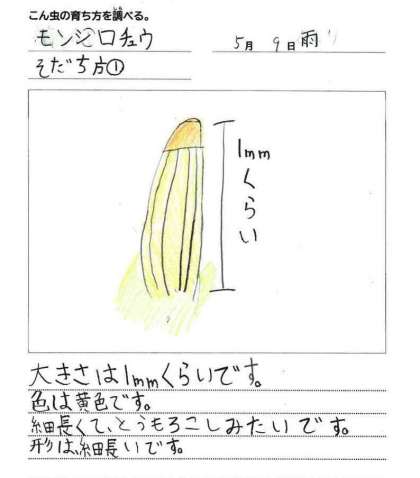 こん虫の育ち方を調べる。
モンシロチョウ
5月 9日 雨
そだち方①
1mm
くらい
大きさは1mmくらいです。
色は黄色です。
細長くて、とうもろこしみたいです。
形は、細長いです。